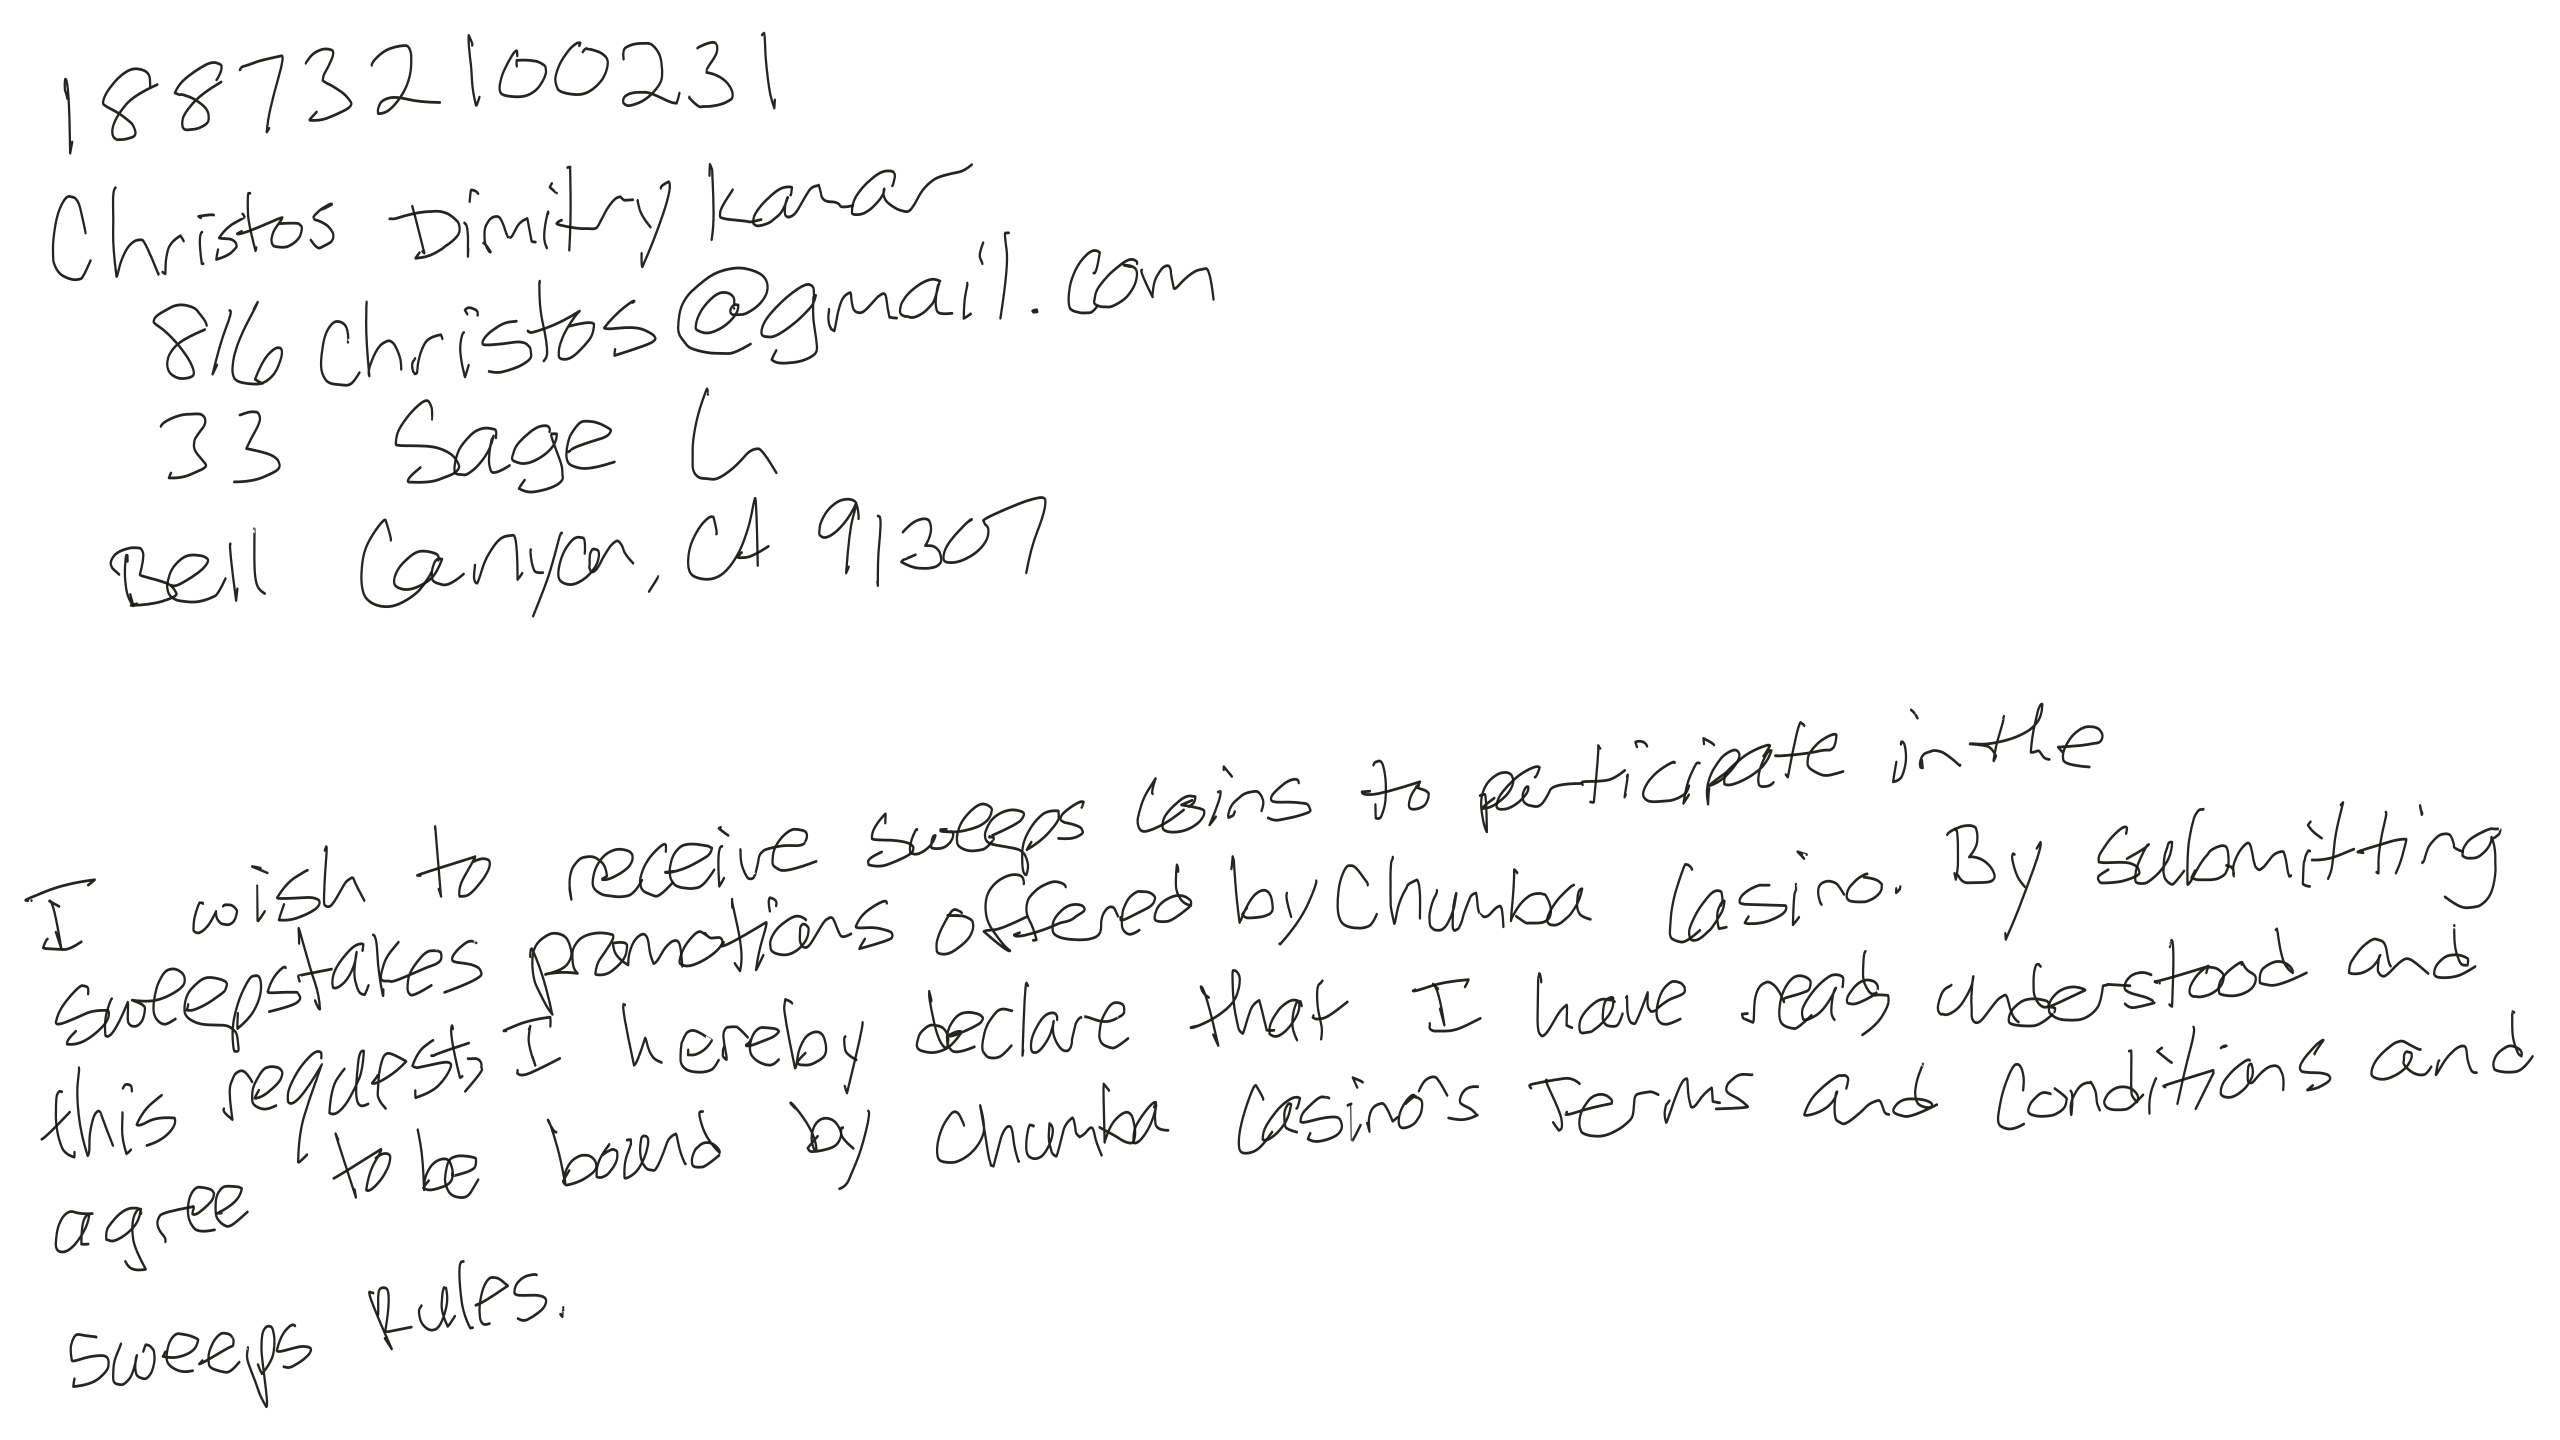 188732100231
Christos Dimitry Kanar
816christos@gmail.com
33 Sage Ln
Bell Canyon, CA 91307
I wish to receive sweeps coins to participate in the
sweepstakes promotions offered by Chumba Casino. By submitting
this request, I hereby declare that I have read understood and
agree to be bound by Chumba Casino's Terms and Conditions and
Sweeps Rules.